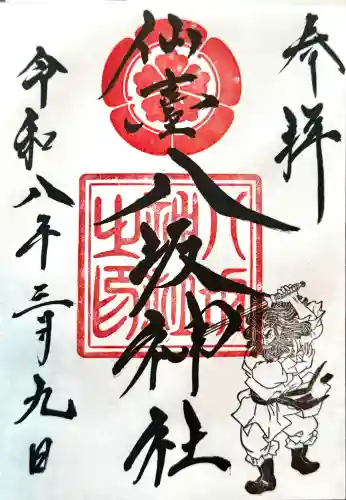 参拝
仙臺
八坂神社
令和八年三月九日
八坂
神社
之印